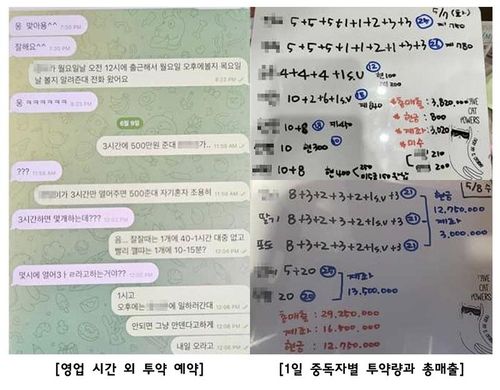 웅 맞아용^^ 7:30 PM
잘해요^^ 7:30 PM
가 월요일날 오전 12시에 출근해서 월요일 오후에볼지 목요일
날 볼지 알려준댄다 전화 왔어요 8:23 PM
웅 ㅋㅋㅋㅋㅋㅋ 8:23 PM
6월 9일
3시간에 500만원 준대 11:58 AM
??? 11:58 AM
이가 3시간만 열어주면 500준대 자기혼자 조용히 11:58 AM
3시간하면 몇개하는데??? 12:03 PM
음... 잘잘때는 1개에 40-1시간 대중 없고
빨리 깰따는 1개에 10-15분? 12:06 PM
몇시에 열어3ㅏㄹ라고하는거야??
1시고
오후에는 에 일하러간대 12:06 PM
안되면 그냥 안된다고하게 12:06 PM
내일 오라고 12:08 PM
[영업 시간 외 투약 예약]
5/7 (화)
5+5+5+1+1+2+3+3 25 780
5+5+5+1+1+2+1+3+3 26 계 780
4+4+4+1s.v 12 현100
10+2+6+1s.v 18 계 840
10+8 18
10 현300 10
10+8 현400
*총매출: 3,820,000
*현금: 800
*계좌: 3,020
*미수
210
210
AVE
CAT
POWERS
5/8 수
8+3+2+3+2+1s.v+3 21
딸기 8+3+2+3+2+1s.v+3 21
포도 8+3+2+3+2+1s.v+3 21
현금
12,750.000
계좌
3,000.000
5+20 25
20 20
계좌
13,500.000
총매출: 29,250.000
계좌: 16,500.000
현금: 12,750.000
[1일 중독자별 투약량과 총매출]